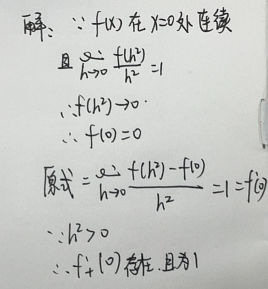 解: ∵ f(x) 在 x=0 处连续
且 lim h→0 f(h²)/h² =1
∴ f(h²)→0.
∴ f(0)=0
原式= lim h→0 f(h²)-f(0)/h² =1=f'(0)
∵ h²>0
∴ f'₊(0) 存在.且为1